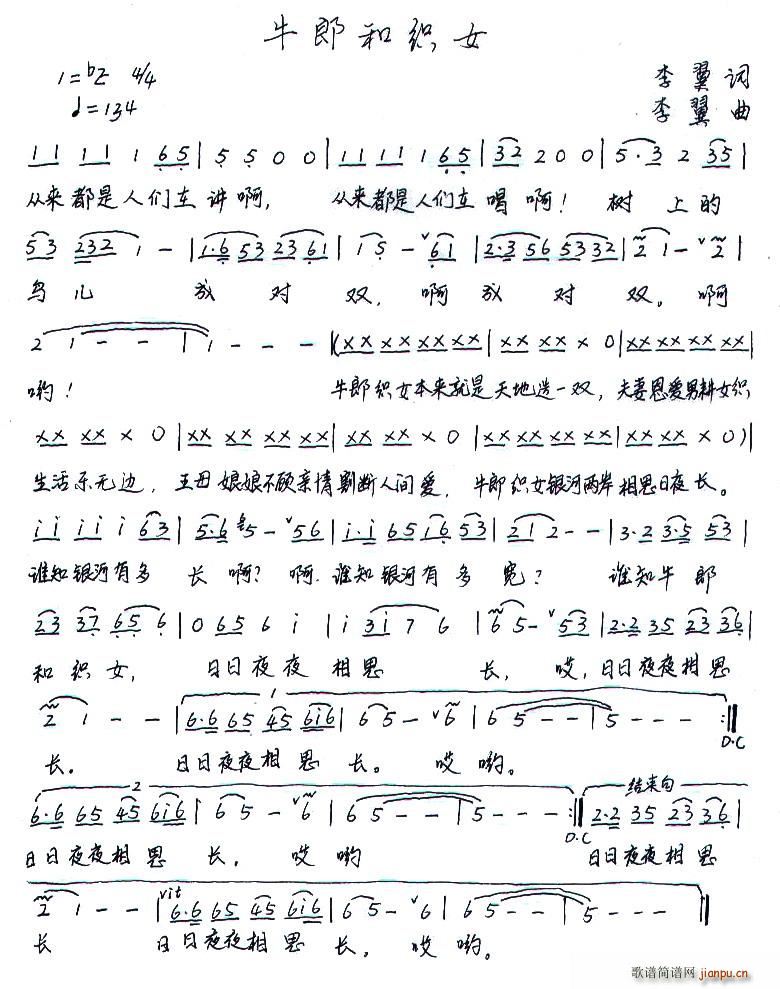 牛郎和织女
1=bE 4/4 李翼词
♩=134 李翼曲
1 1 1 1 1 6 5 | 5 5 0 0 | 1 1 1 1 1 6 5 | 3 2 2 0 0 | 5 · 3 2 3 5 |
从来都是人们在讲啊, 从来都是人们在唱啊! 树上的
5 3 2 3 2 1 - | 1 · 6 5 3 2 3 6 1 | 1 5 - v 6 1 | 2 · 3 5 6 5 3 3 2 | 2 1 - v 2 |
鸟儿 成对双, 啊成对双。啊
2 1 - - | 1 - - - | (x x x x x x x x | x x x x x 0 | x x x x x x x x |
哟! 牛郎织女本来就是天地造一双, 夫妻恩爱男耕女织
x x x x x 0 | x x x x x x x x | x x x x x 0 | x x x x x x x x | x x x x x 0) |
生活乐无边, 王母娘娘不顾亲情割断人间爱, 牛郎织女银河两岸相思日夜长。
i i i i i 6 3 | 5 · 6 5 - v 5 6 | i · i 6 5 i 6 5 3 | 2 1 2 - - | 3 · 2 3 · 5 5 3 |
谁知银河有多长啊? 啊.谁知银河有多宽? 谁知牛郎
2 3 3 7 6 5 6 | 0 6 5 6 i | i 3 i 7 6 | 6 5 - v 5 3 | 2 · 2 3 5 2 3 3 6 |
和织女, 日日夜夜相思长, 哎,日日夜夜相思
2 1 - - | 1 6 · 6 6 5 4 5 6 i 6 | 6 5 - v 6 | 6 5 - - | 5 - - - :‖ D.C
长。 日日夜夜相思长。 哎哟。
2 结束句
6 · 6 6 5 4 5 6 i 6 | 6 5 - v 6 | 6 5 - - | 5 - - - :‖ D.C 2 · 2 3 5 2 3 3 6 |
日日夜夜相思长, 哎哟 日日夜夜相思
vit
2 1 - - | 6 · 6 6 5 4 5 6 i 6 | 6 5 - v 6 | 6 5 - - | 5 - - - ‖
长 日日夜夜相思长, 哎哟。
歌谱简谱网 jianpu.cn